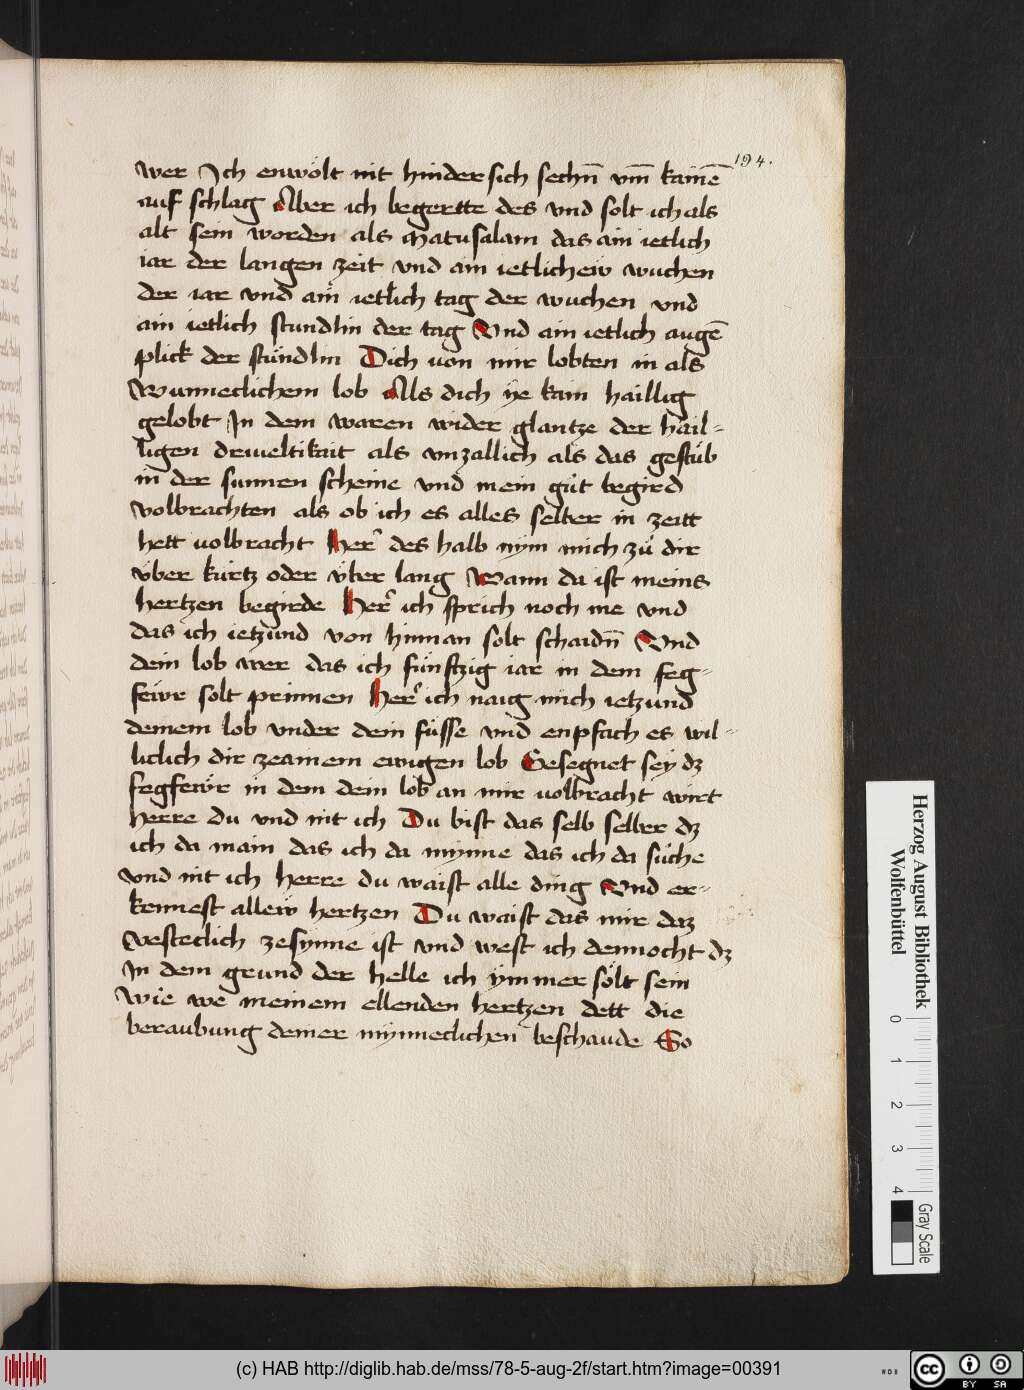 194.
wer Ich enwölt nit hinder sich sechn̄ vm̄ kainē
auf schlag Aber ich begertte des vnd solt ich als
alt sein worden als Matusalam das ain ietlich
iar der langen zeit vnd ain ietlichew wuchen
der iar vnd ain ietlich tag der wuchen vnd
ain ietlich stundlin der tag Vnd ain ietlich augē
plick der stündlin Dich von mir lobten in als
Wunneclichem lob Alls dich ÿe kain haillig
gelobt In dem waren wider glantze der hail-
ligen driueltikait als vnzallich als das gestüb
in der sunnen scheine vnd mein gůt begird
volbrachten als ob ich es alles selber in zeitt
hett volbracht Her̄ des halb nÿm mich zů dir
über kürtz oder über lang Wann da ist meins
hertzen begirde Her̄ ich sprich noch me vnd
das ich ietzund von hinnan solt schaidn̄ Vnd
dein lob wer das ich fünftzig iar in dem feg-
fewr solt prinnen Her̄ ich naig mich ietzund
deinem lob vnder dein füsse vnd enpfach es wil-
liclich dir zeainem ewigen lob Gesegnet seÿ dz
fegfewr in dem dein lob an mir volbracht wirt
Herre du vnd nit ich Du bist das selb selber dz
ich da main das ich da mÿnne das ich da sůche
vnd nit ich herre du waist alle ding Vnd er-
kennest allew hertzen Du waist das mir daz
vesteclich zesÿnne ist vnd west ich dennocht dz
In dem grund der helle ich ÿmmer sölt sein
wie we meinem ellenden hertzen dett die
beraubung deiner mÿnneclichen beschaude So
Herzog August Bibliothek
Wolfenbüttel
0 1 2 3 4
Gray Scale
(c) HAB http://diglib.hab.de/mss/78-5-aug-2f/start.htm?image=00391
cc BY SA